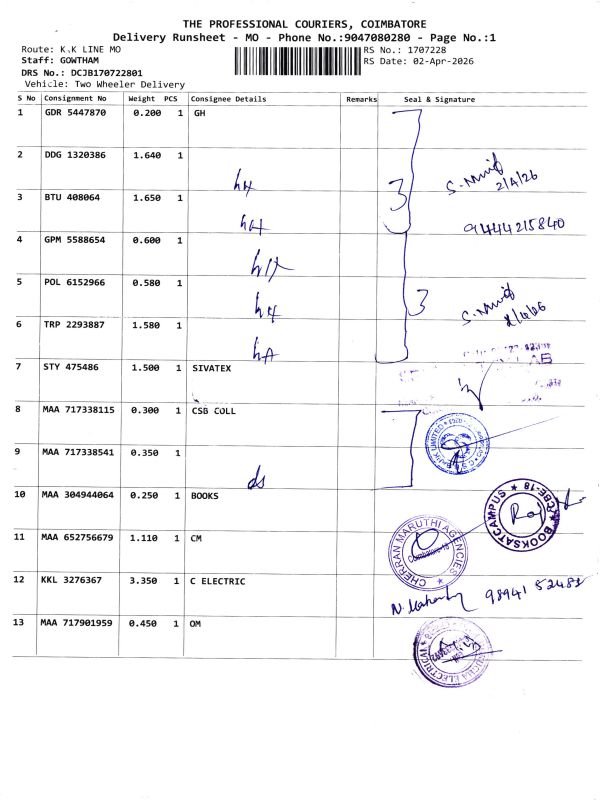 THE PROFESSIONAL COURIERS, COIMBATORE
Delivery Runsheet - MO - Phone No.:9047080280 - Page No.:1
Route: K.K LINE MO
RS No.: 1707228
Staff: GOWTHAM
RS Date: 02-Apr-2026
DRS No.: DCJB170722801
Vehicle: Two Wheeler Delivery
S No Consignment No Weight PCS Consignee Details Remarks Seal & Signature
1 GDR 5447870 0.200 1 GH
2 DDG 1320386 1.640 1
3 2/4/26
3 BTU 408064 1.650 1
9444215840
4 GPM 5588654 0.600 1
5 POL 6152966 0.580 1
3
6 TRP 2293887 1.580 1
7 STY 475486 1.500 1 SIVATEX
8 MAA 717338115 0.300 1 CSB COLL
9 MAA 717338541 0.350 1
ds
10 MAA 304944064 0.250 1 BOOKS
BOOKSATCAMPUS ★ CBE-18 ★
11 MAA 652756679 1.110 1 CM
CHERRAN MARUTHI AGENCIES ★ Coimbatore-18
12 KKL 3276367 3.350 1 C ELECTRIC
13 MAA 717901959 0.450 1 OM